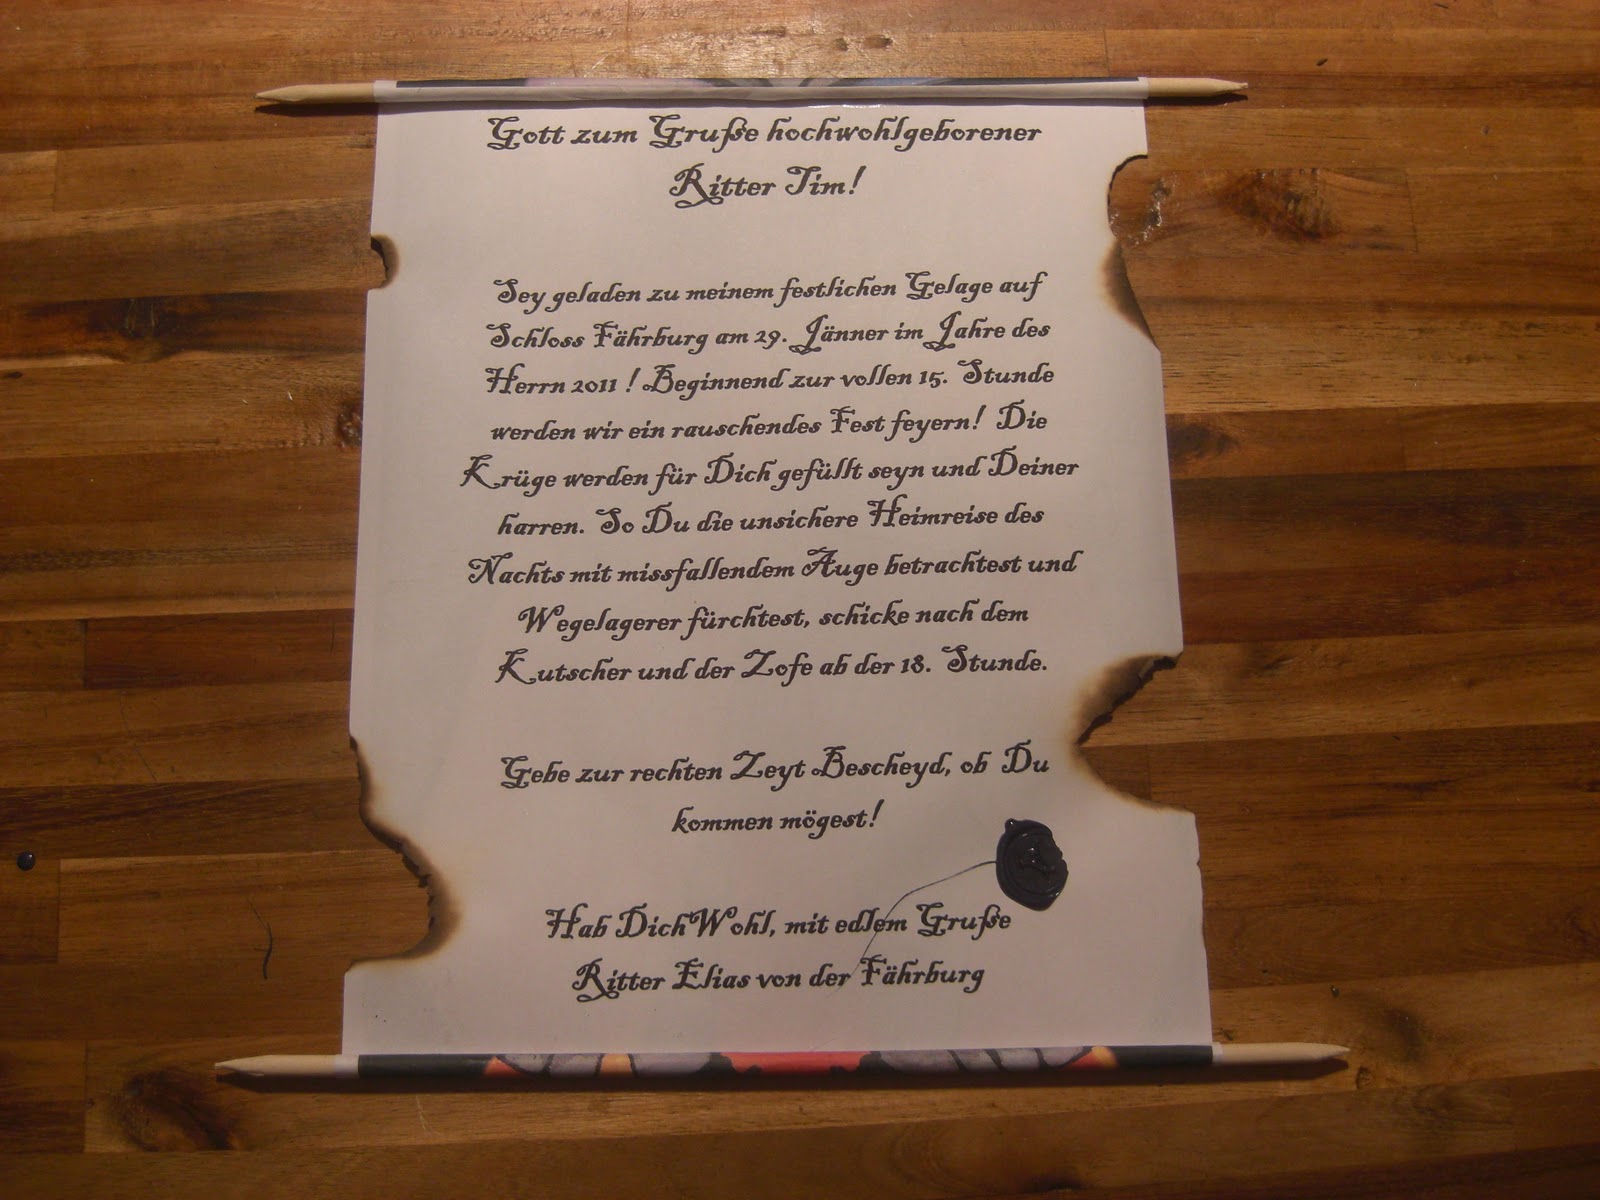 Gott zum Gruße hochwohlgeborener
Ritter Tim!
Sey geladen zu meinem festlichen Gelage auf
Schloss Fährburg am 29. Jänner im Jahre des
Herrn 2011 ! Beginnend zur vollen 15. Stunde
werden wir ein rauschendes Fest feyern! Die
Krüge werden für Dich gefüllt seyn und Deiner
harren. So Du die unsichere Heimreise des
Nachts mit missfallendem Auge betrachtest und
Wegelagerer fürchtest, schicke nach dem
Kutscher und der Zofe ab der 18. Stunde.
Gebe zur rechten Zeyt Bescheyd, ob Du
kommen mögest!
Hab Dich Wohl, mit edlem Gruße
Ritter Elias von der Fährburg